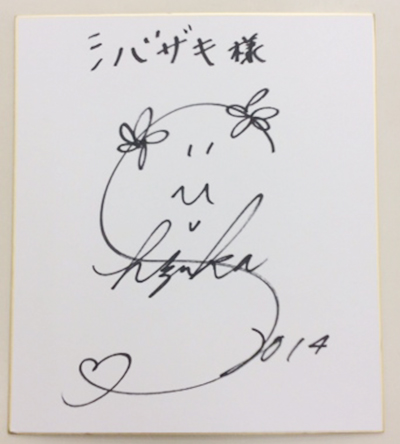 シバザキ様
2014